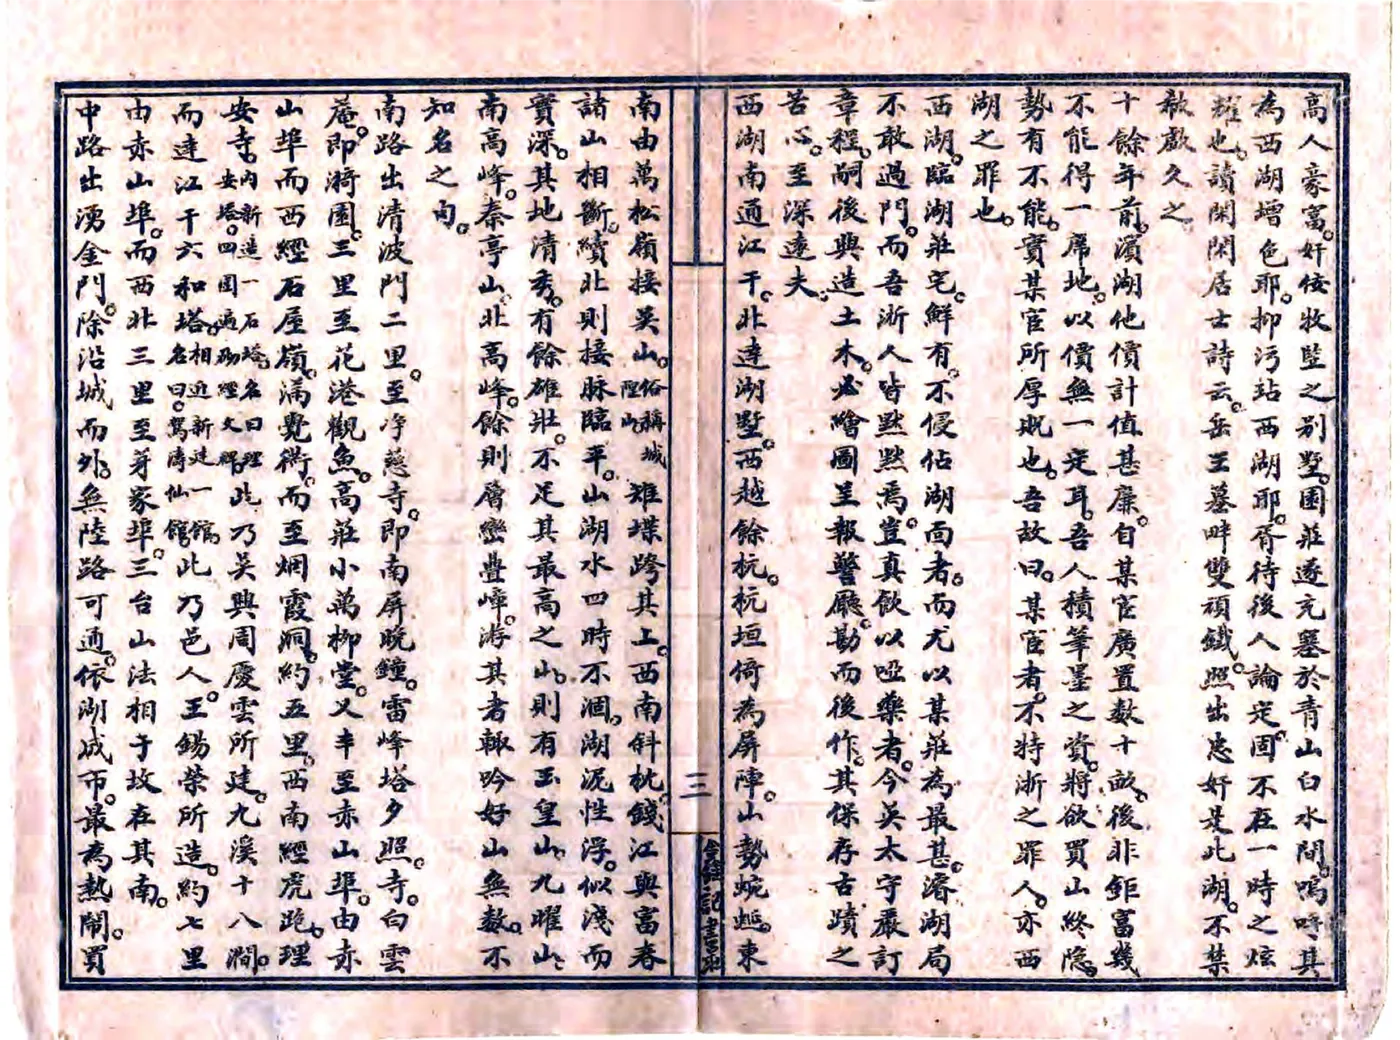 高人豪富。奸佞牧豎之别墅。園莊遂充塞於青山白水間。嗚呼。其
為西湖增色耶。抑污玷西湖耶。胥待後人論定。固不在一時之炫
耀也。讀閑閑居士詩云。岳王墓畔雙頑鐵。照出忠奸是此湖。不禁
欷歔久之。
十餘年前。濱湖他價計值甚廉。自某宦廣置数十畝。後非鉅富幾
不能得一席地。以價無一定耳。吾人積筆墨之資。將欲買山終隱。
勢有不能。實某宦所厚貺也。吾故曰。某宦者。不特浙之罪人。亦西
湖之罪也。
西湖。臨湖莊宅。鮮有。不侵佔湖面者。而尤以某莊為最甚。濬湖局
不敢過門。而吾浙人皆默默焉。豈真飲以啞藥者。今英太守嚴訂
章程。嗣後興造土木。必繪圖呈報警廳。勘而後作。其保存古蹟之
苦心。至深遠夫。
西湖南通江干。北達湖墅。西越餘杭。杭垣倚為屏障。山勢蜿蜒。東
南由萬松嶺接吴山。俗稱城隍山。雉堞跨其上。西南斜枕。錢江與富春
諸山相斷續。北則接脉臨平。山湖水四時不涸。湖泥性浮。似淺而
實深。其地清秀。有餘雄壯。不足其最高之山。則有玉皇山。九曜山。
南高峰。秦亭山。北高峰。餘則層巒疊嶂。游其者輙吟好山無数。不
知名之句。
南路出清波門二里。至净慈寺。即南屏晚鐘。雷峰塔夕照。寺。白雲
菴。即漪園。三里至花港觀魚。高莊小萬柳堂。又半至赤山埠。由赤
山埠而西經石屋嶺。滿覺衖。而至烟霞洞。約五里。西南經虎跑。理
安寺。内新造一石塔。名曰理安塔。四圍遍砌經文碑。此乃吴興周慶雲所建。九溪十八澗。
而達江干六和塔。相近新建一館。名曰。鴛濤仙館。此乃邑人。王錫榮所造。約七里
由赤山埠。而西北三里至茅家埠。三台山法相于坟在其南。
中路出湧金門。除沿城而外。無陸路可通。依湖成市。最為熱鬧。買
三